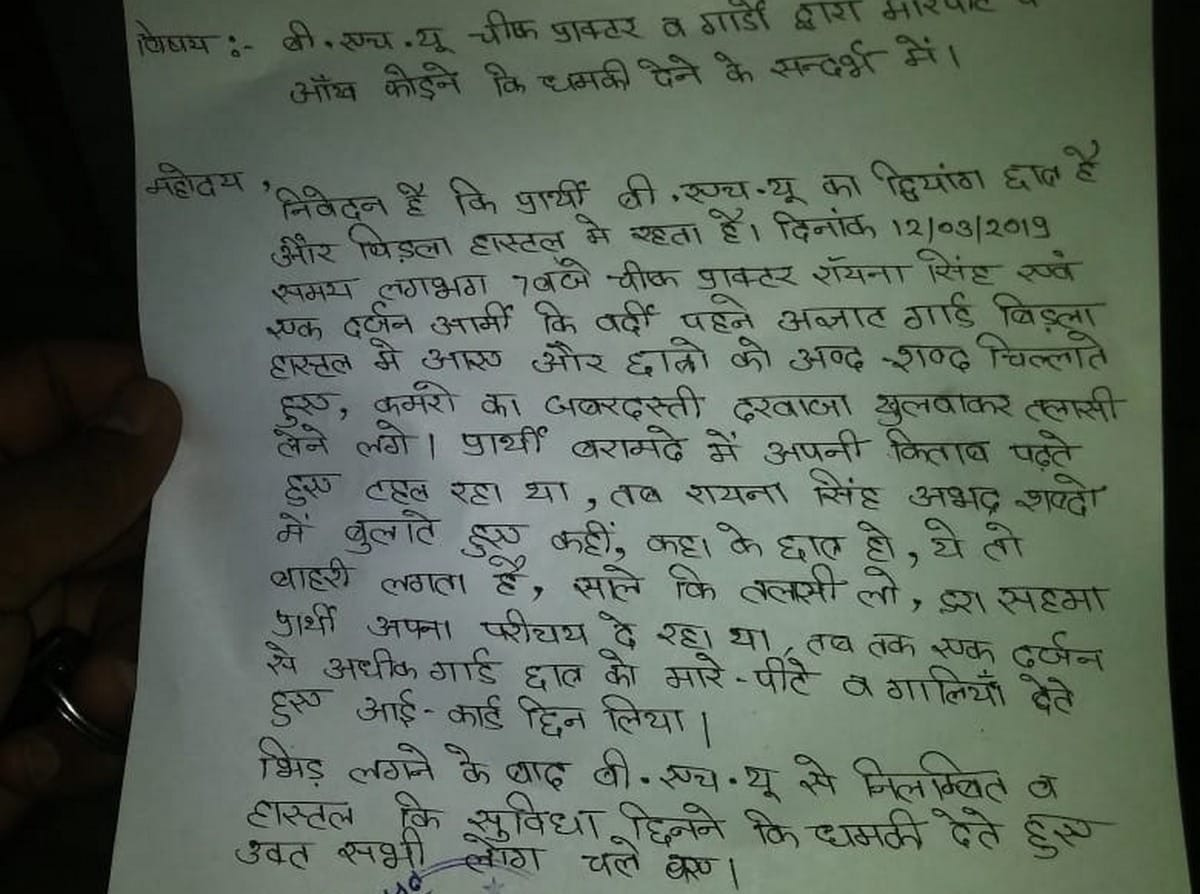 विषय :- बी.एच.यू चीफ प्राक्टर व गार्डो द्वारा मारपीट व
आँख फोड़ने कि धमकी देने के सन्दर्भ में।
महोदय,
निवेदन है कि प्रार्थी बी.एच.यू का द्वियांग छात्र है
और बिड़ला हास्टल मे रहता है। दिनांक 12/03/2019
समय लगभग 7बजे चीफ प्राक्टर रॉयना सिंह एवं
एक दर्जन आर्मी कि वर्दी पहने अज्ञात गार्ड बिड़ला
हास्टल मे आए और छात्रो को अपद-शब्द चिल्लाते
हुए, कमरो का जबरदस्ती दरवाजा खुलवाकर तलासी
लेने लगे। प्रार्थी बरामदे में अपनी किताब पढ़ते
हुए टहल रहा था, तब रायना सिंह अभद्र शब्दो
में बुलाते हुए कहीं, कहा के छात्र हो, ये तो
बाहरी लगता है, साले कि तलासी लो, डरा सहमा
प्रार्थी अपना परीचय दे रहा था, तब तक एक दर्जन
से अधीक गार्ड छात्र को मारे-पीटे व गालियाँ देते
हुए आई-कार्ड छिन लिया।
भिड़ लगने के बाद बी.एच.यू से निलम्बित व
हास्टल कि सुविधा छिनने कि धमकी देते हुए
उक्त सभी लोग चले गए।